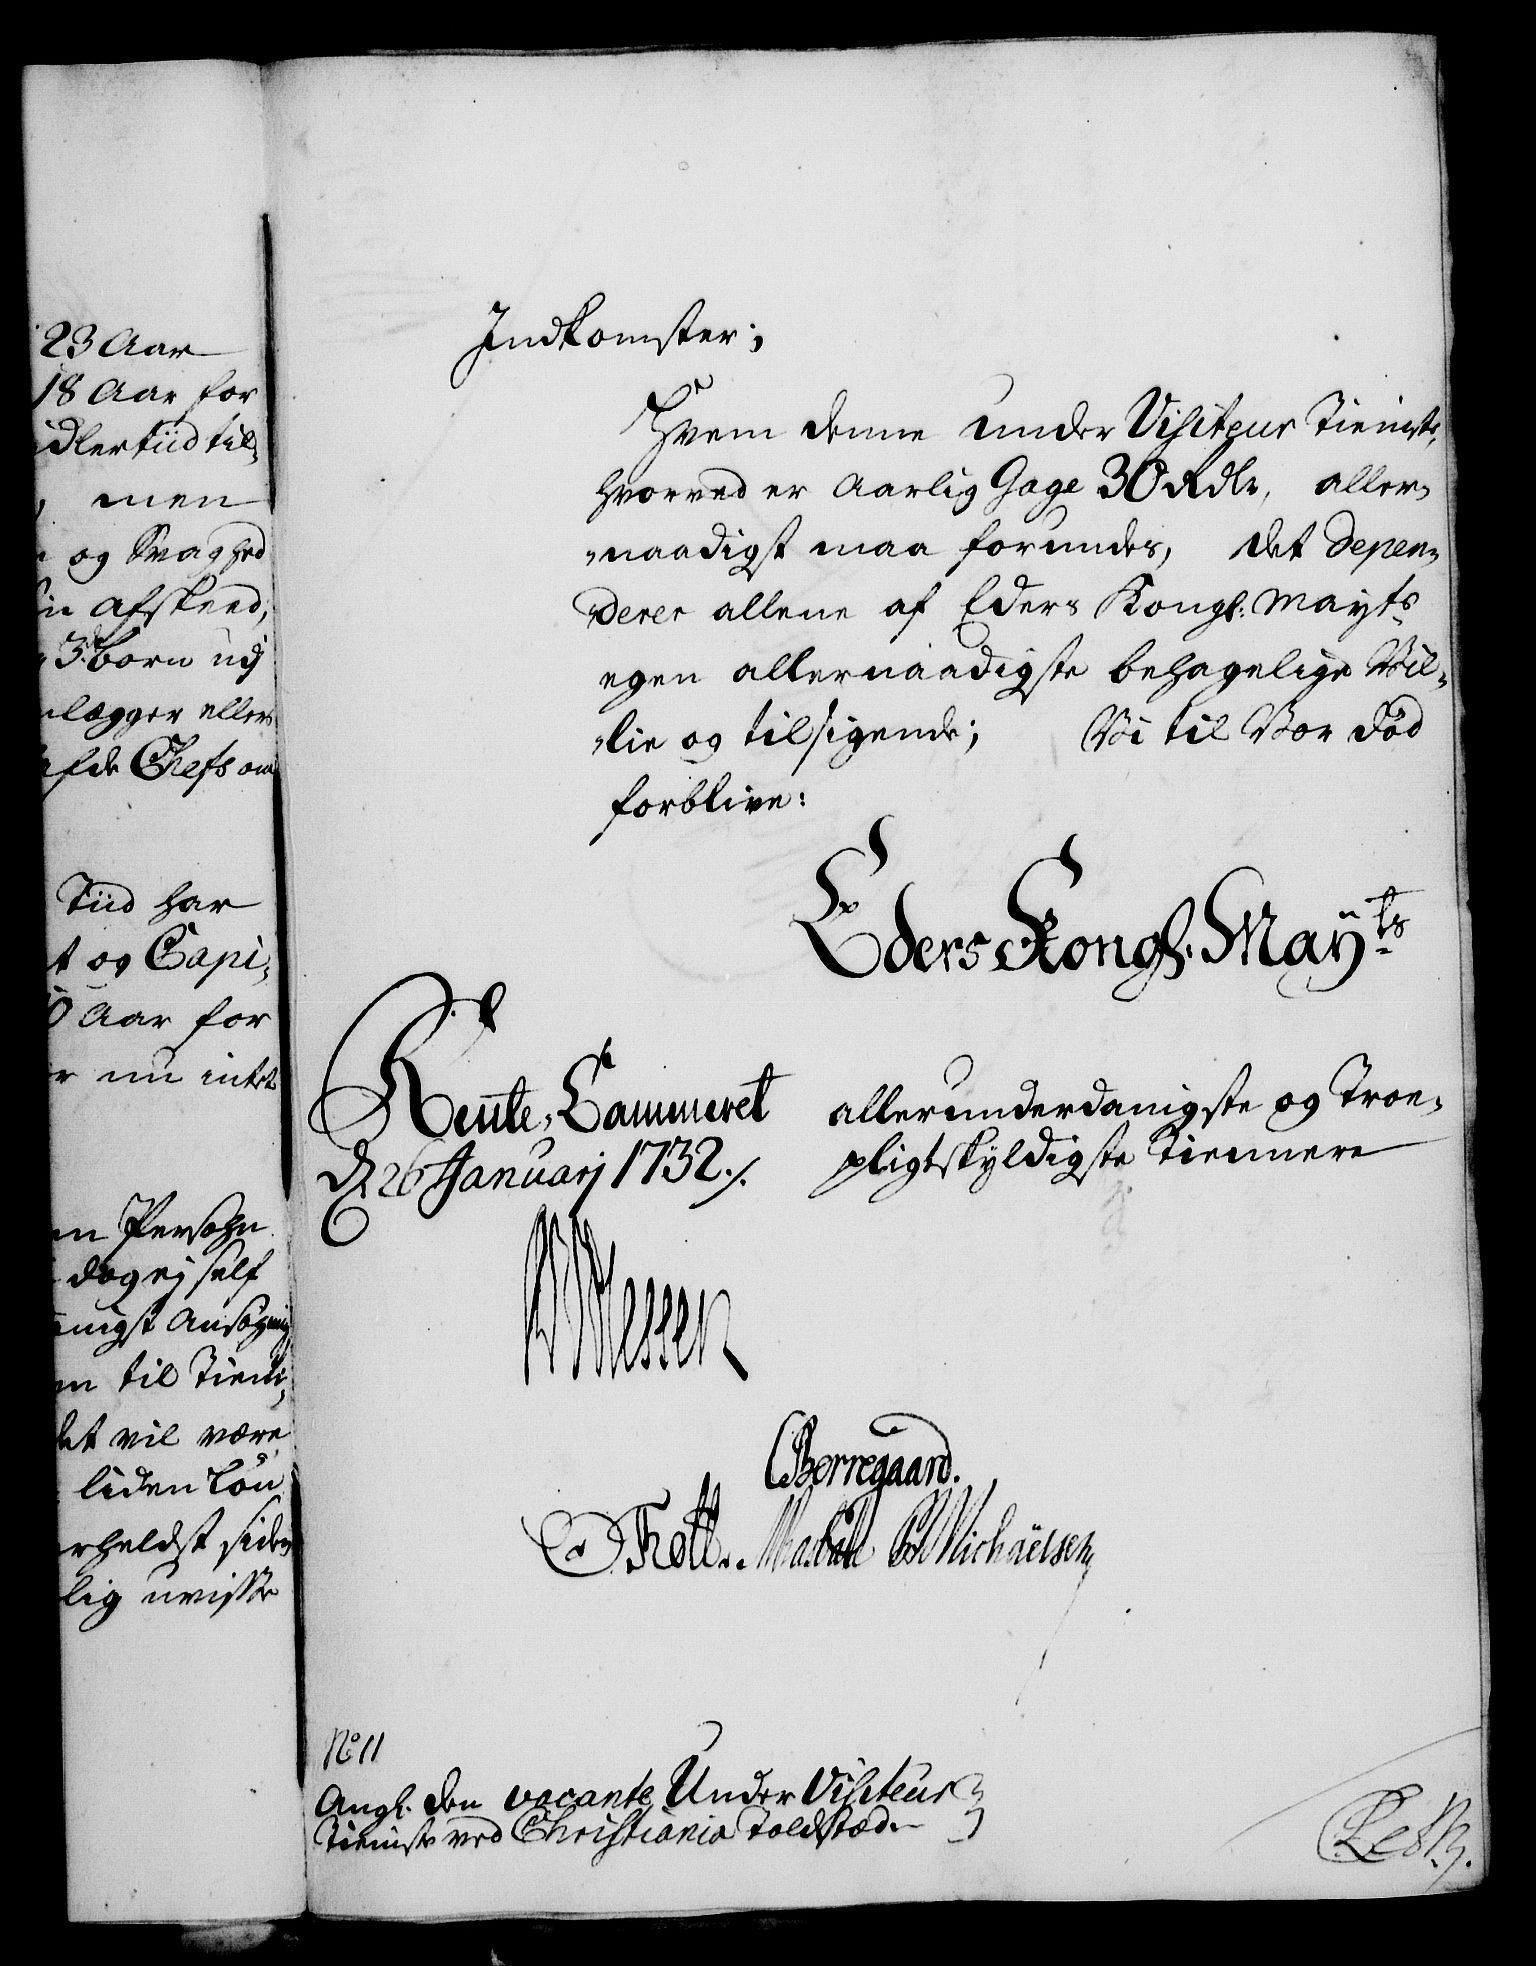 23 Aar
18 Aar for
idlertiid til-
men
og Svaghed
afskeed,
3de børn udj
lægger eller
afde Chefs om
Tiid har
og Capi-
Aar for
nu intet
Persohn
dog ej self
nigst Ansøgning
til Tieni-
det vil være
liden Løn
helst siden
lig uvisse
Indkomster;
Hvem denne under Visiteur Tieniste,
hvorved er Aarlig Gage 30 Rdlr, aller-
naadigst maa forundes, det depen-
derer allene af Eders Kongl: Mayts
egen allernaadigste behagelige Vil-
lie og tilsigende; Vi til Vor død
forblive:
Eders Kongl. Mayts
Rente-Cammeret
d 26 Januarj 1732./.
allerunderdanigste og Troe-
pligtskyldigste Tiennere
Wessen
CBerregaard.
Frøll. PMichaelsen
No 11
Angl. den vacante Under Visiteur
Tieniste ved Christiania Toldstæd.